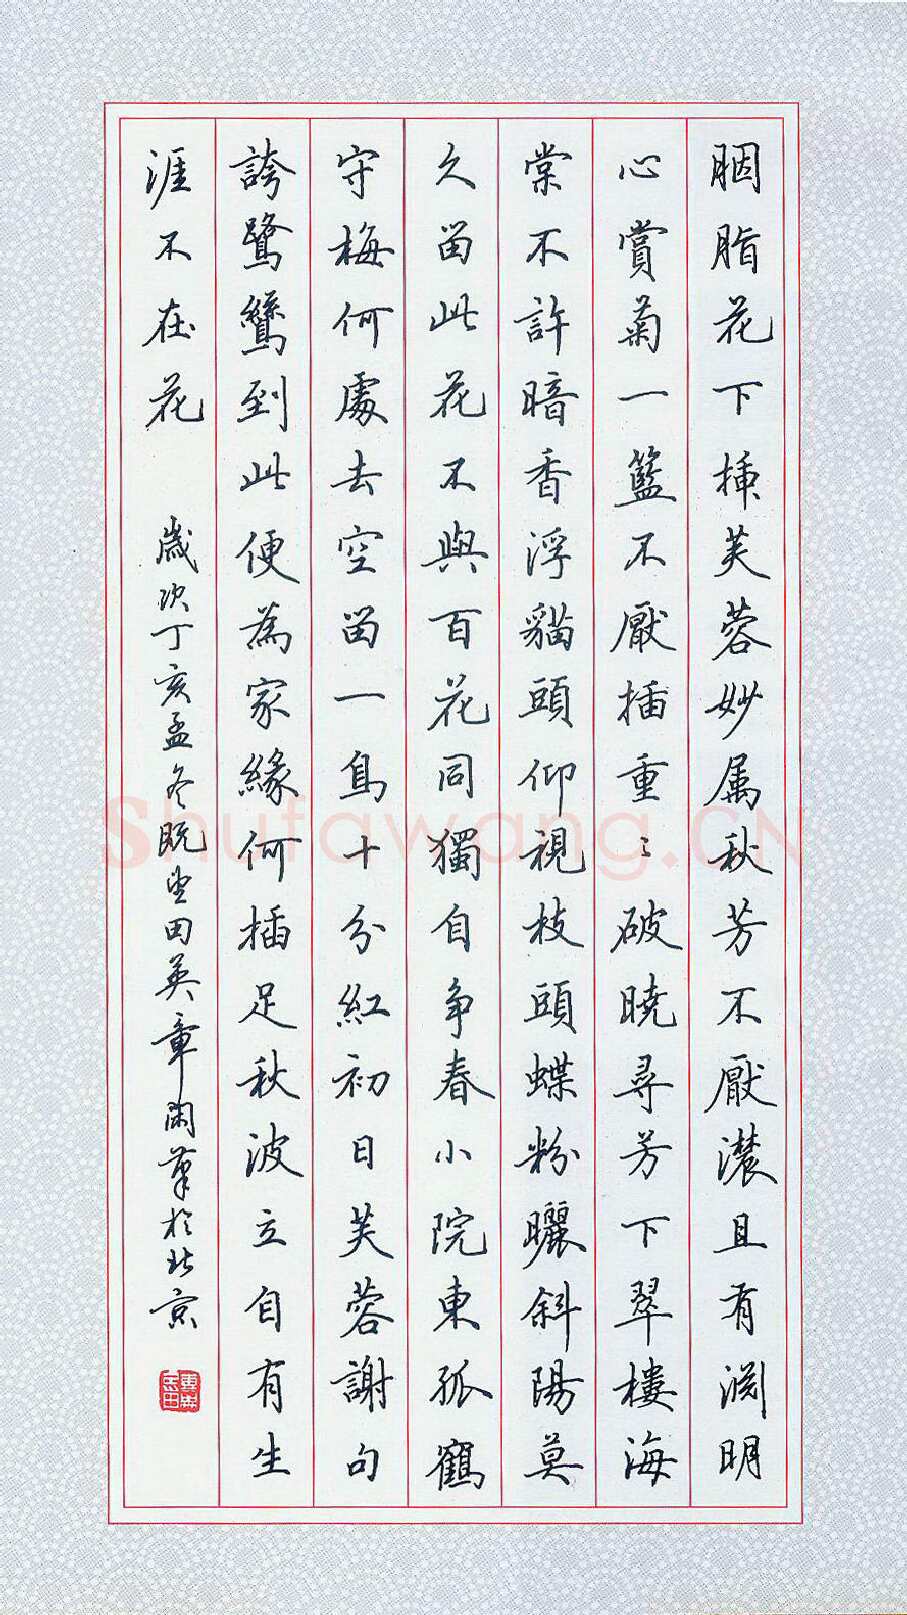 胭脂花下插芙蓉妙属秋芳不厭濃且有渊明
心賞菊一籃不厭插重〻破曉尋芳下翠樓海
棠不許暗香浮貓頭仰視枝頭蝶粉曬斜陽莫
久留此花不與百花同獨自爭春小院東孤鶴
守梅何處去空留一鳥十分紅初日芙蓉謝句
誇鷺鷥到此便為家緣何插足秋波立自有生
涯不在花
歲次丁亥孟冬既望田英章閑筆於北京
Shufawang.CN